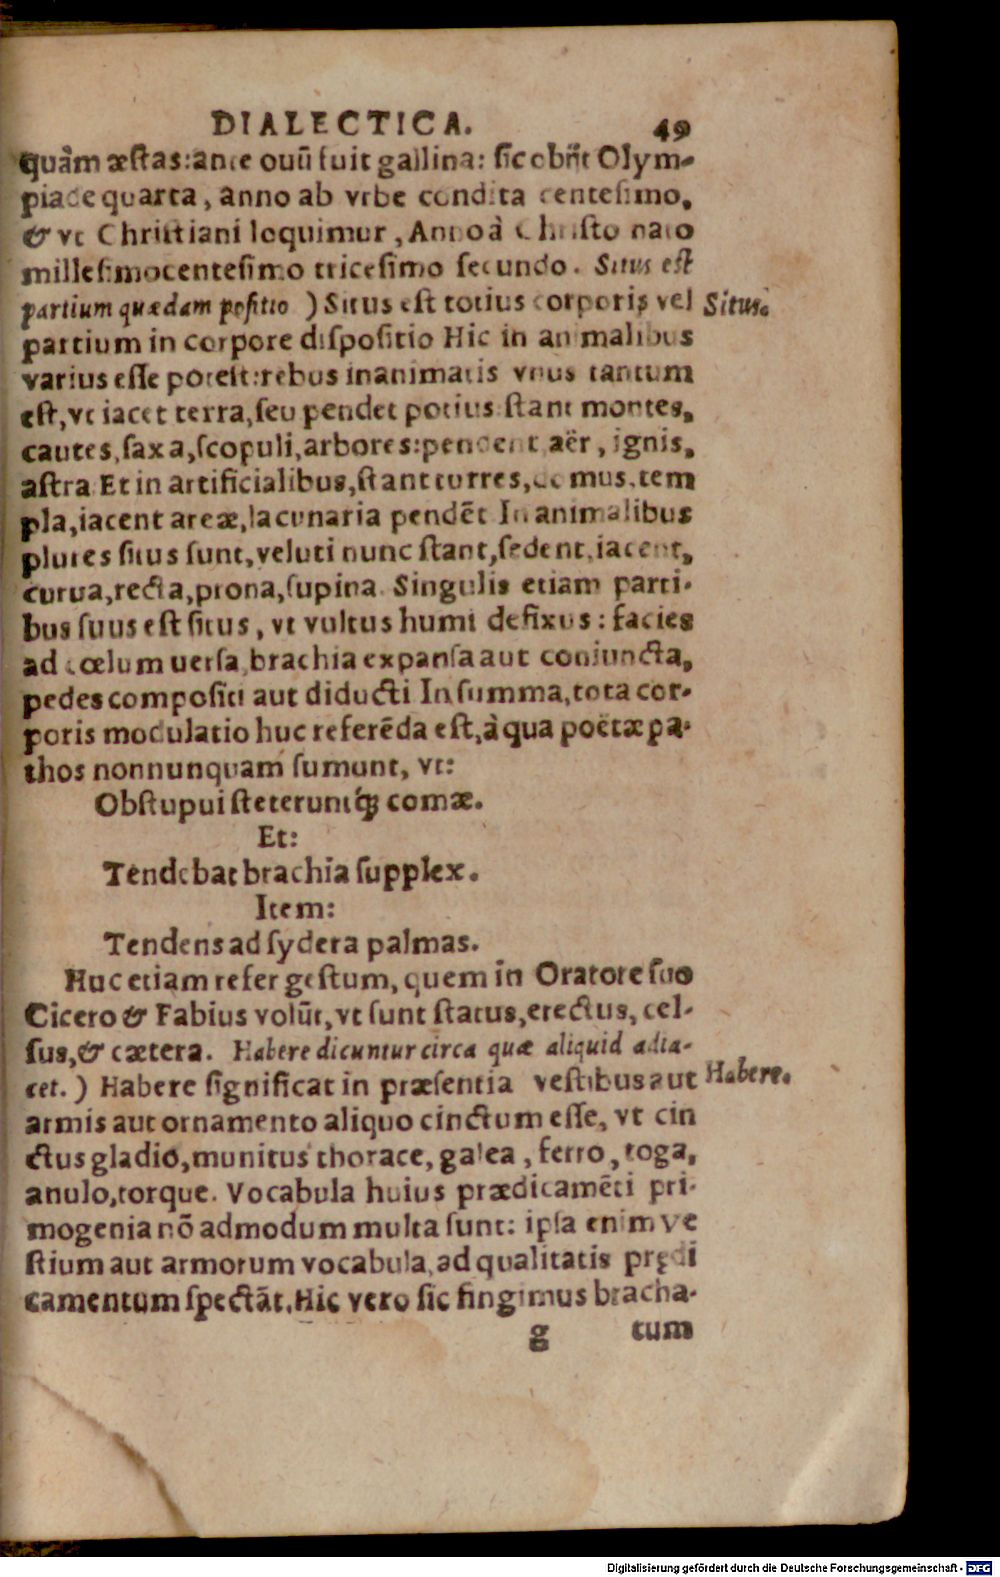 DIALECTICA. 49
quàm æstas: ante ouũ fuit gallina: sic obiit Olym-
piade quarta, anno ab vrbe condita centesimo,
& vt Christiani loquimur, Anno à Christo nato
millesimocentesimo tricesimo secundo. Situs est
partium quædam positio ) Situs est totius corporis vel
Situs.
partium in corpore dispositio Hic in animalibus
varius esse potest: rebus inanimatis vnus tantum
est, vt iacet terra, seu pendet potius: stant montes,
cautes, saxa, scopuli, arbores: pendent aër, ignis,
astra Et in artificialibus, stant turres, domus, tem
pla, iacent areæ, lacunaria pendẽt In animalibus
plures situs sunt, veluti nunc stant, sedent, iacent,
curua, recta, prona, supina. Singulis etiam parti-
bus suus est situs, vt vultus humi defixus: facies
ad cœlum uersa, brachia expansa aut coniuncta,
pedes compositi aut diducti In summa, tota cor-
poris modulatio huc referẽda est, à qua poëtæ pa-
thos nonnunquam sumunt, vt:
Obstupui steteruntq́; comæ.
Et:
Tendebat brachia supplex.
Item:
Tendens ad sydera palmas.
Huc etiam refer gestum, quem in Oratore suo
Cicero & Fabius volũt, vt sunt status, erectus, cel-
sus, & cætera. Habere dicuntur circa quæ aliquid adia-
cet. ) Habere significat in præsentia vestibus aut
Habere.
armis aut ornamento aliquo cinctum esse, vt cin
ctus gladio, munitus thorace, galea, ferro, toga,
anulo, torque. Vocabula huius prædicamẽti pri-
mogenia nõ admodum multa sunt: ipsa enim ve
stium aut armorum vocabula, ad qualitatis prędi
camentum spectãt. Hic vero sic fingimus bracha-
g tum
Digitalisierung gefördert durch die Deutsche Forschungsgemeinschaft - DFG